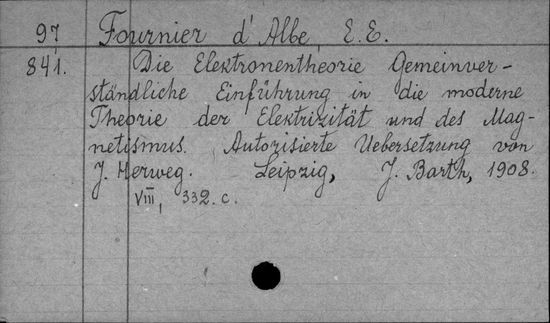 97 Fournier d'Albe, E.E.
841. Die Elektronentheorie Gemeinver-
ständliche Einführung in die moderne
Theorie der Elektrizität und des Mag-
netismus. Autorisierte Uebersetzung von
J. Herweg. Leipzig, J. Barth, 1908.
VIII, 332. c.